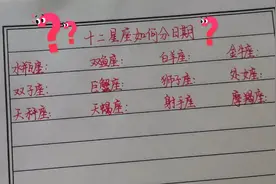 十二星座如何分日期
水瓶座： 双鱼座： 白羊座： 金牛座：
双子座： 巨蟹座： 狮子座： 处女座：
天秤座： 天蝎座： 射手座： 摩羯座：